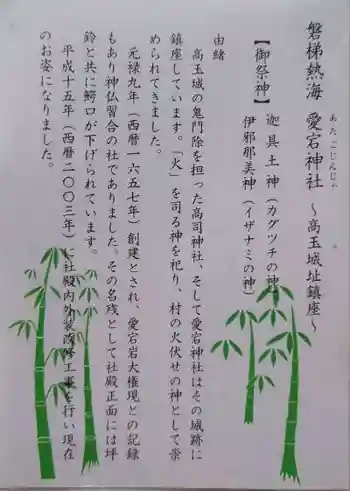 磐梯熱海 愛宕神社 ～高玉城址鎮座～
あたごじんじゃ
【御祭神】 迦具土神（カグツチの神）
伊邪那美神（イザナミの神）
由緒
高玉城の鬼門除を担った高司神社、そして愛宕神社はその城跡に
鎮座しています。「火」を司る神を祀り、村の火伏せの神として崇
められてきました。
元禄九年（西暦一六五七年）創建とされ、愛宕岩大権現との記録
もあり神仏習合の社でありました。その名残として社殿正面には坪
鈴と共に鰐口が下げられています。
平成十五年（西暦二〇〇三年）に社殿内外装改修工事を行い現在
のお姿になりました。